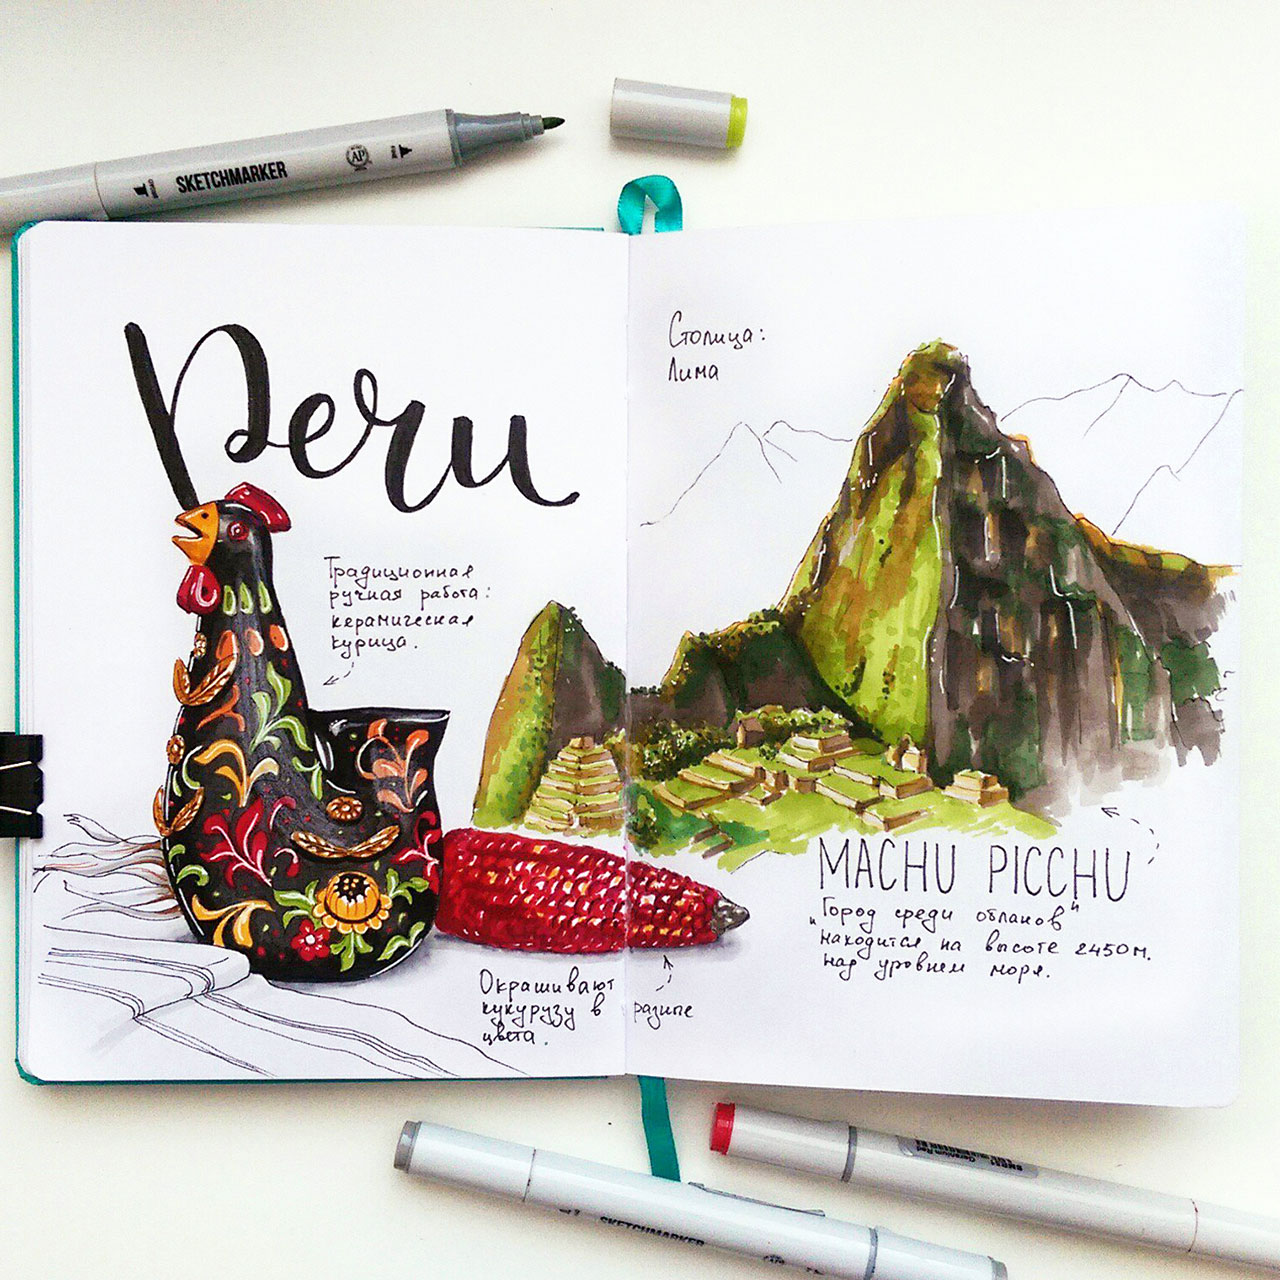 SKETCHMARKER
AP
Peru
Традиционная
ручная работа:
керамическая
курица.
Окрашивают
кукурузу в разные
цвета.
Столица:
Лима
MACHU PICCHU
"Город среди облаков"
находится на высоте 2450м.
над уровнем моря.
SKETCHMARKER
Geranium Red